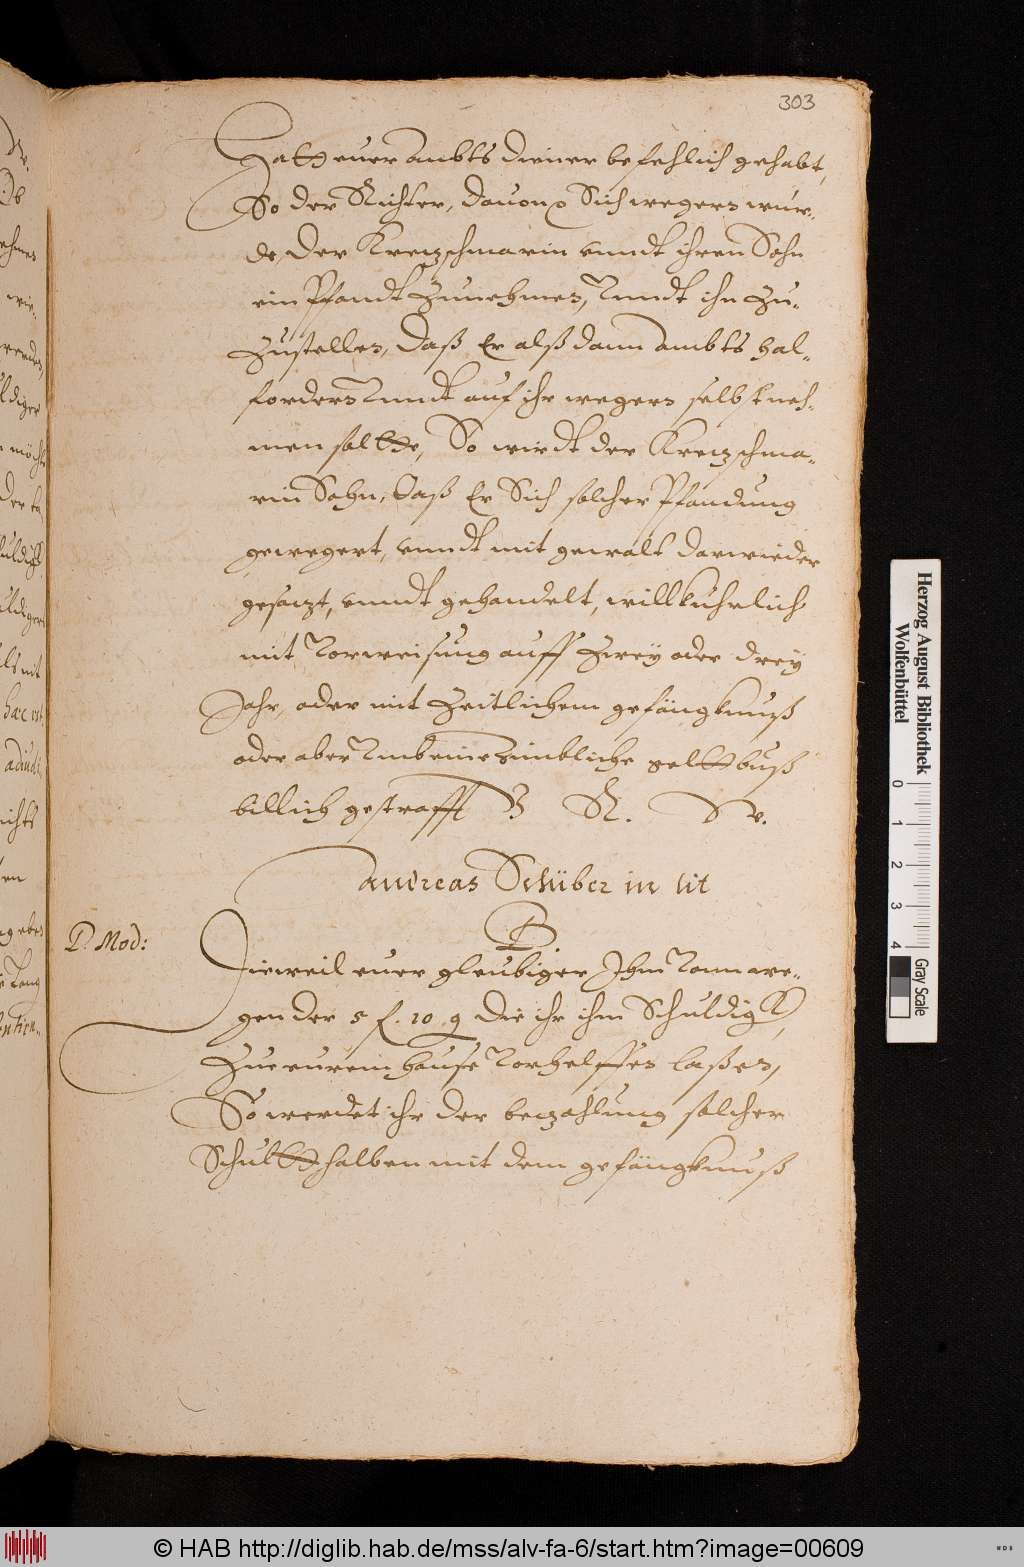 303
Hatt euer ambts diener befehlich gehabt,
So der Richter, dauon Sich wegern wur-
de, Der Kretzschmarin vnndt ihren Sohn
ein Pfandt Zunehmen, Vnndt ihn Zu-
Zustellen, Daß Er alß dann ambts hal-
fordern Vnndt auf ihr wegern selbst neh-
men soltte, So wirdt der Kretzschma-
rin Sohn, Daß Er Sich solcher Pfandung
gewegert, vnndt mit gewalt darwieder
gesatzt, vnndt gehandelt, willkuhrlich
mit Vorweisung auff Zwey oder drey
Jahr, oder mit Zeitlichem gefängknuß
oder aber Vmb eine Zimbliche geltt buß
billich gestrafft V R W
Andreas Schüber in lit
P.
P. Mod:
Dieweil euer gleubiger Ihm Vonn we-
gen der 5 f. 10 g die ihr ihm Schuldig
Zue eurem hause Vorhelffen laßen,
So werdet ihr der bezahlung solcher
Schultt halben mit dem gefängknuß
Herzog August Bibliothek
Wolfenbüttel
0 1 2 3 4
Gray Scale
© HAB http://diglib.hab.de/mss/alv-fa-6/start.htm?image=00609
WDB